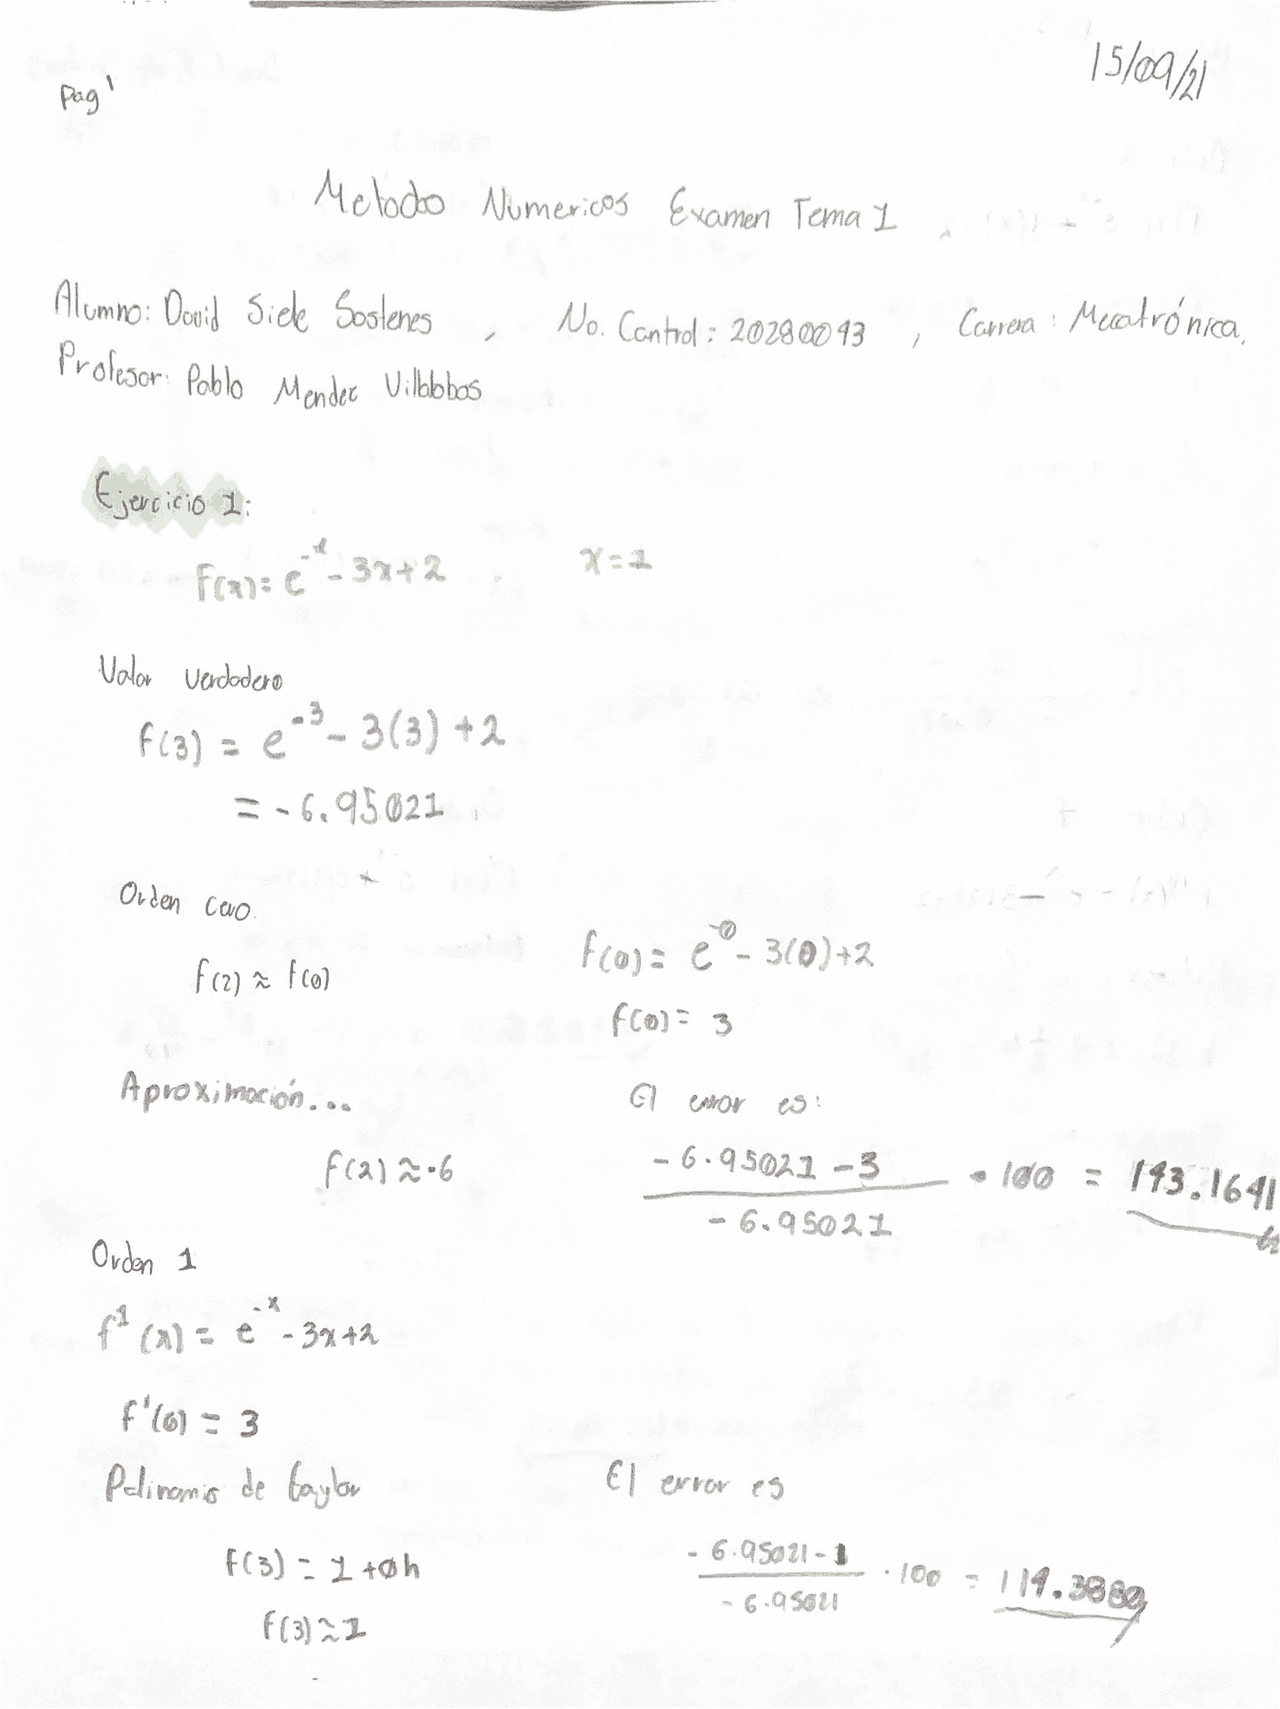 Pag 1
15/09/21
Metodo Numericos Examen Tema 1
Alumno: David Siele Sostenes , No. Control: 20280093 , Carrera: Mecatrónica.
Profesor: Pablo Mendez Villalobos
Ejercicio 1:
F(x)= e^-1 - 3x+2 x=1
Valor verdadero
f(3) = e^-3 - 3(3) +2
= -6.95021
Orden cero.
f(2) ≈ f(0) f(0)= e^-0 - 3(0)+2
f(0)= 3
Aproximación... El error es:
f(2) ≈ -6 -6.95021 -3 / -6.95021 • 100 = 143.1641
Orden 1
f^1 (x) = e^-x - 3x+2
f'(0) = 3
Polinomio de taylor El error es
F(3) = 1 +0h -6.95021-1 / -6.95021 · 100 = 114.3880
f(3) ≈ 1